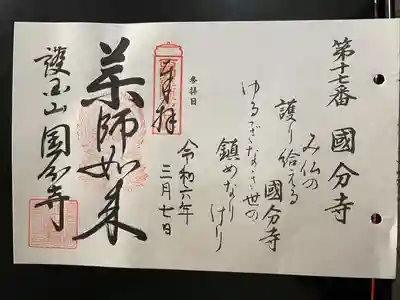 第十七番 國分寺
み仏の
護り給える
國分寺
ゆるぎなき世の
鎮めなり
けり
参拝日
奉拝
令和六年
三月七日
薬師如来
護国山 国分寺